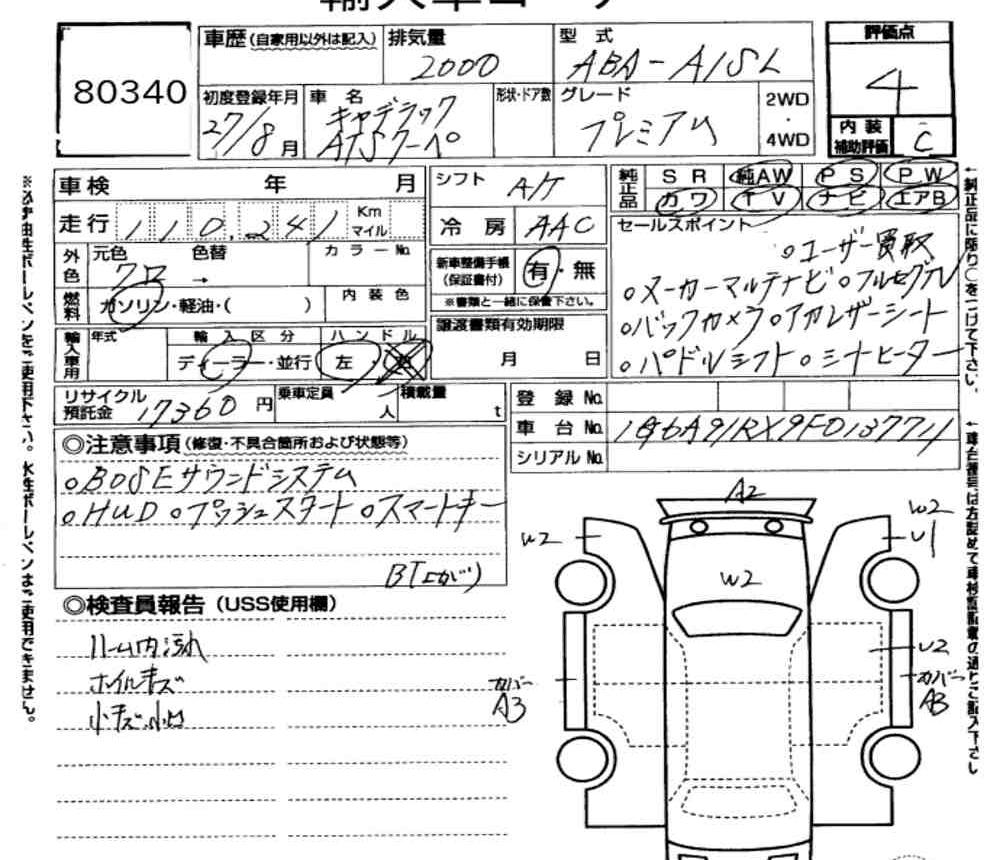 80340
車歴(自家用以外は記入) 排気量 2000 型式 ABA-A1SL 評価点 4
初度登録年月 27/8月 車名 キャデラック ATSクーペ 形状・ドア数 グレード プレミアム 2WD・4WD 内装補助評価 C
車検 年 月 シフト A/T 純正品 SR 純AW PS PW
走行 110,241 Km マイル 冷房 AAC カワ TV ナビ エアB
外色 元色 クロ 色替 → カラーNo. 新車整備手帳(保証書付) 有・無 セールスポイント
※書類と一緒に保管下さい。 ○ユーザー買取
燃料 ガソリン・軽油・( ) 内装色 譲渡書類有効期限 ○メーカーマルチナビ ○フルセグTV
輸入車用 年式 輸入区分 ディーラー・並行 ハンドル 左・右 月 日 ○バックカメラ ○アカレザーシート
○パドルシフト ○シートヒーター
リサイクル預託金 17360円 乗車定員 人 積載量 t 登録No.
車台No. 1G6A91RX9F0137711
シリアルNo.
◎注意事項(修復・不具合箇所および状態等)
○BOSEサウンドシステム
○HUD ○プッシュスタート ○スマートキー
BT(エカバ)
◎検査員報告(USS使用欄)
ルーム内汚れ
ホイルキズ
小キズ小凹
A2
W2
W2
U1
W2
U2
カバー A3
カバー A3
※必ず油性ボールペンをご使用下さい。水性ボールペンはご使用できません。
↑純正品に限り○をつけて下さい。
↑車台番号は左詰めで車検証記載の通りご記入下さい